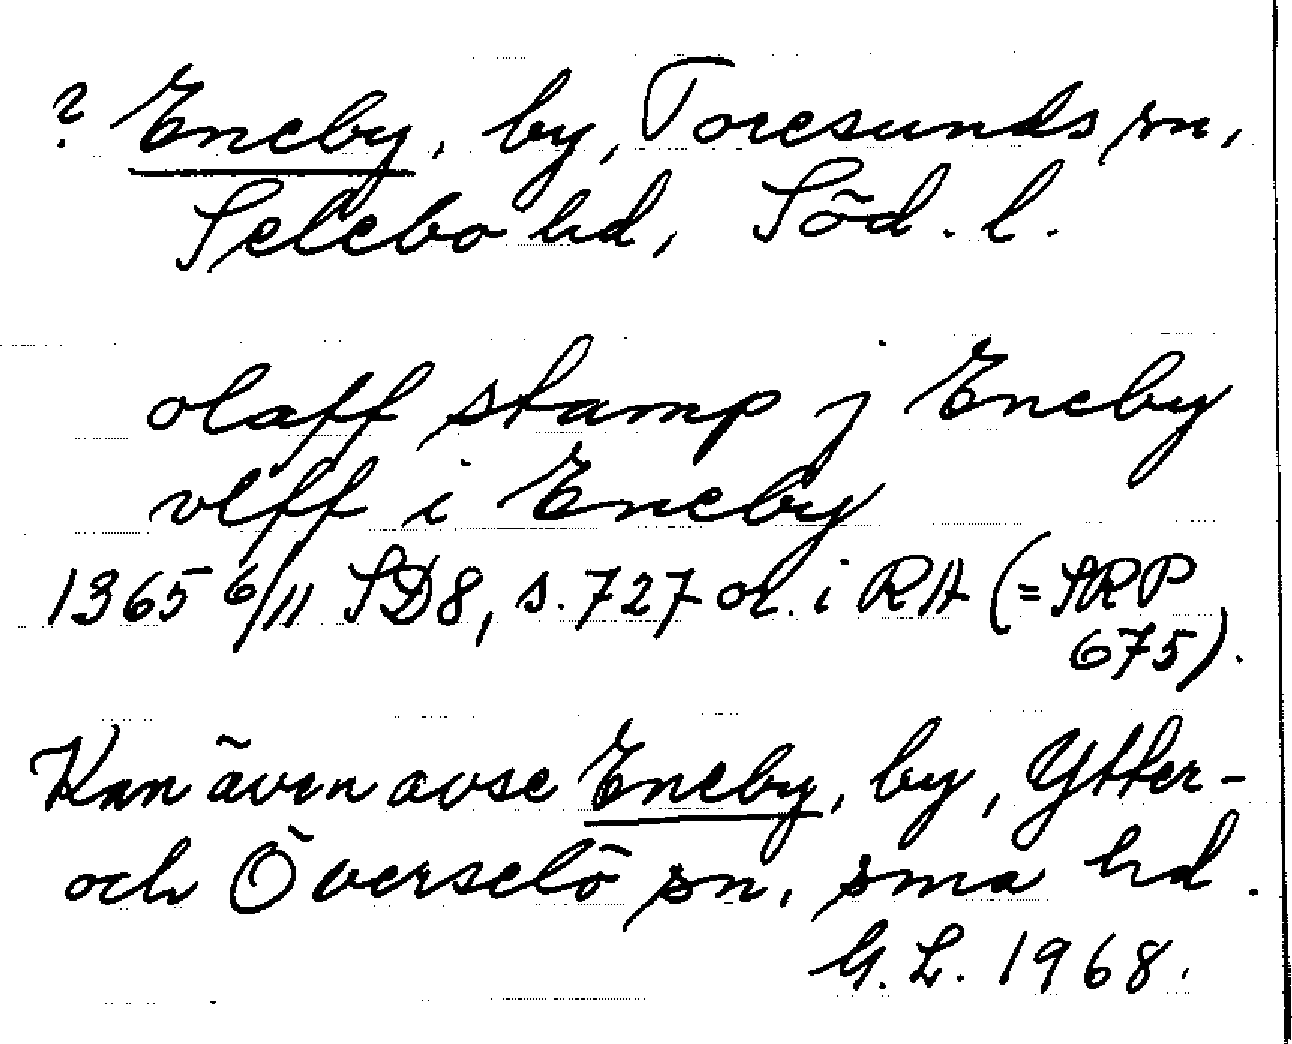 ? Eneby, by, Toresunds sn,
Selebo hd, Söd. l.
olaff stamp j Eneby
vlff i Eneby
1365 6/11 SD8, s. 727 or. i RA (= SRP
675).
Kan även avse Eneby, by, Ytter-
och Överselö sn, sma hd.
G. L. 1968.